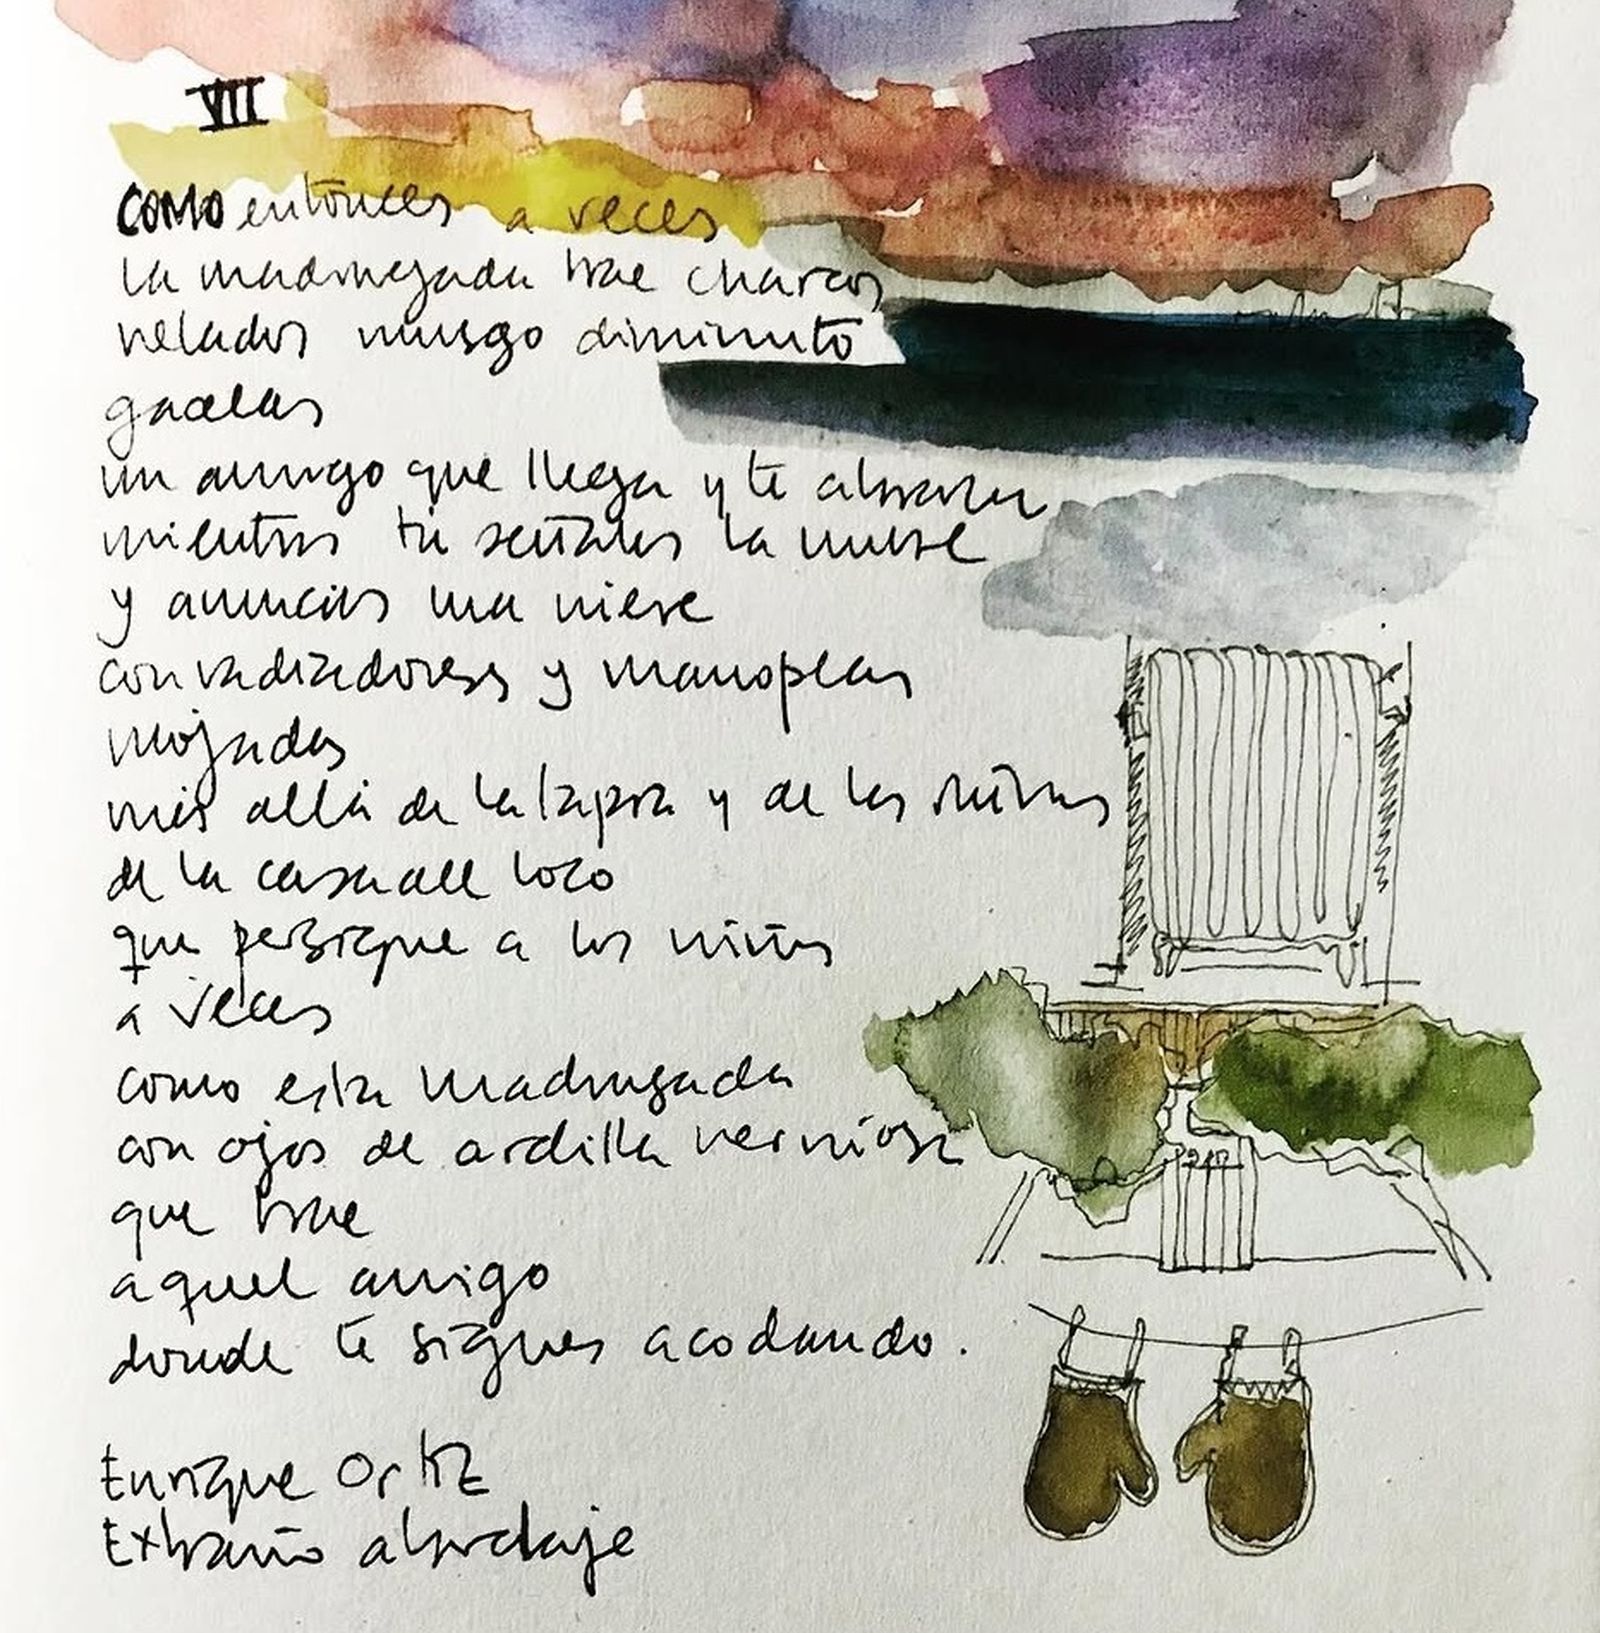 VII
COMO entonces a veces
la madrugada trae charcos
helados musgo diminuto
gacelas
un amigo que llega y te abraza
mientras tú señalas la nube
y anuncias una nieve
con radiadores y manoplas
mojadas
más allá de la tapia y de las ruinas
de la casa del loco
que persigue a los niños
a veces
como esta madrugada
con ojos de ardilla nerviosa
que trae
aquel amigo
donde te sigues acodando.
Enrique Ortiz
Extraño abordaje